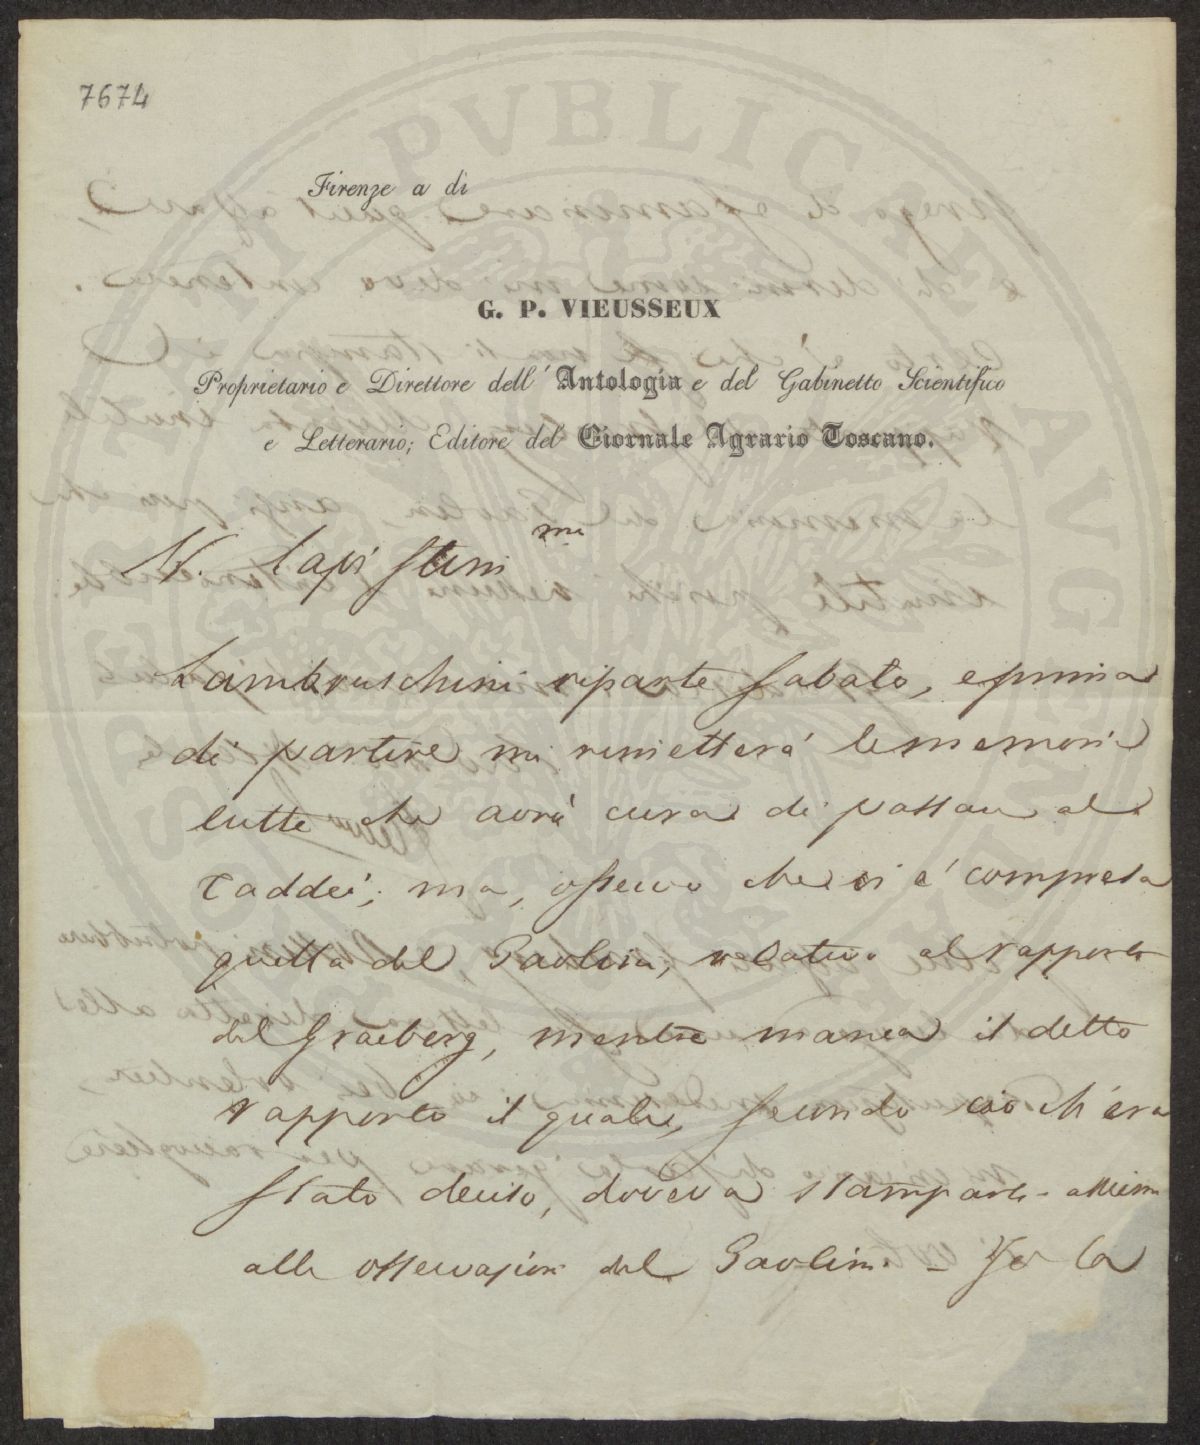 7674
Firenze a di
G. P. VIEUSSEUX
Proprietario e Direttore dell' Antologia e del Gabinetto Scientifico
e Letterario; Editore del Giornale Agrario Toscano.
Lambruschini riparte sabato, e prima
di partire mi rimetterà le memorie
tutte che avrà cura di passare al
Taddei; ma, osservo che vi è compresa
quella del Paolini, relativa al rapporto
del Graeberg, mentre manca il detto
rapporto il quale, secondo ciò ch'era
stato deciso, doveva stamparsi assieme
alle osservazioni del Paolini. –